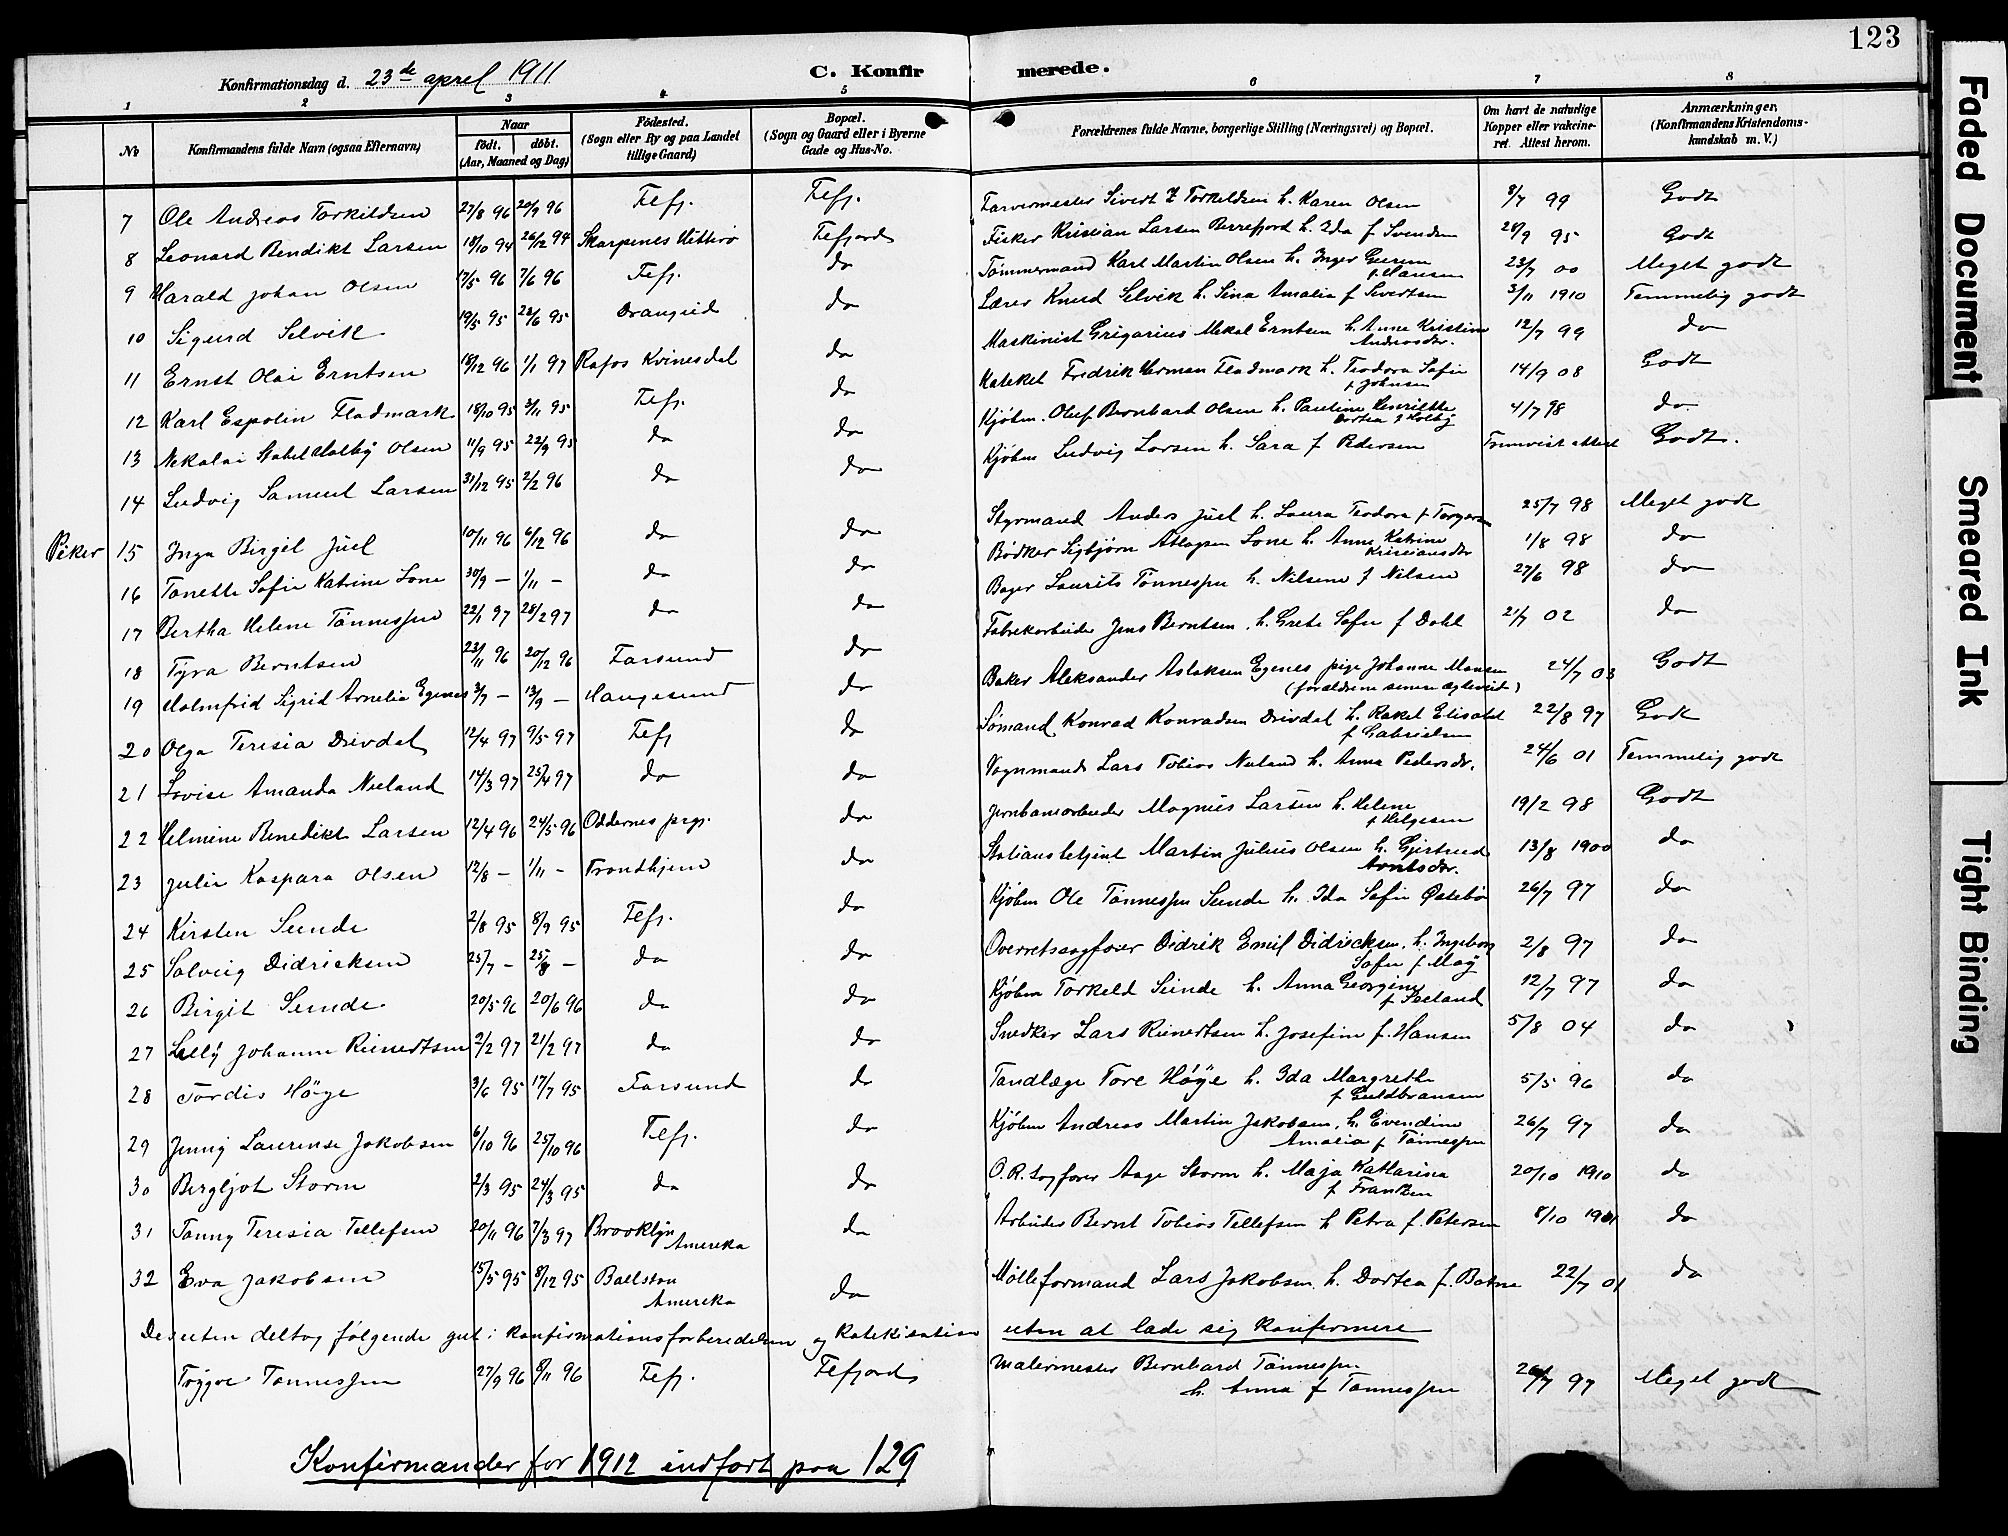 123
Konfirmationsdag d. 23de aprel 1911 C. Konfirmerede.
1 2 3 4 5 6 7 8
No Konfirmandens fulde Navn (ogsaa Efternavn) Naar født. døbt. (Aar, Maaned og Dag) Fødested. (Sogn eller By og paa Landet tillige Gaard) Bopæl. (Sogn og Gaard eller i Byerne Gade og Hus-No. Forældrenes fulde Navne, borgerlige Stilling (Næringsvei) og Bopæl. Om havt de naturlige Kopper eller vakcineret. Attest herom. Anmærkninger. (Konfirmandens Kristendomskundskab m. V.)
7 Ole Andreas Torkildsen 27/8 96 20/9 96 Flefj. Flefj. Farvermester Sivert Torkeldsen h. Karen Olsen 3/7 99 Godt
8 Leonard Bendikt Larsen 18/10 94 26/12 94 Skarpenes Hitterø Flefjord Fisker Kristian Larsen Berrefjord h. Ida f Svendsen 28/9 95 Godt
9 Harald Johan Olsen 17/5 96 7/6 96 Flefj. do Tømmermand Karl Martin Olsen h. Inger f. Hansen 23/7 00 Meget godt
10 Sigurd Selvik 19/5 95 22/6 95 Drangeid do Lærer Knud Selvik h. Sina Amalia f Sivertsen 3/11 1910 Temmelig godt
11 Ernst Olai Erntsen 18/12 96 1/1 97 Rafos Kvinesdal do Maskinist Grigarius Mekal Erntsen h. Anne Kristine Andreasdr. 12/7 99 do
12 Karl Espolin Fladmark 18/10 95 3/11 95 Flefj. do Kateket Fredrik Herman Fladmark h. Teodora Sofie f Johnsen 14/9 08 Godt
13 Nekolai Stabel Holby Olsen 11/9 95 22/9 95 do do Kjøbm. Oluf Bernhard Olsen h. Pauline Henriette Dortea f Holby 4/7 98 do
14 Ludvig Samuel Larsen 31/12 95 2/2 96 do do Kjøbm Ludvig Larsen h. Sara f Pedersen Fremvist attest Godt.
Piker 15 Inga Birgit Juel 10/11 96 6/12 96 do do Styrmand Anders Juel h. Laura Teodora f Torgersen 25/7 98 Meget godt
16 Tonette Sofie Katrine Lone 30/9 – 1/11 – do do Bødker Sigbjørn Atlagsen Lone h. Anne Katrine Kristiansdr 1/8 98 do
17 Bertha Helene Tønnessen 22/1 97 28/2 97 do do Bager Laurits Tønnessen h. Nilsene f Nilsen 27/6 98 do
18 Tyra Berntsen 23/11 96 20/12 96 Farsund do Fabrekarbeider Jens Berntsen h. Grete Sofie f Dahl 21/7 02 do
19 Holmfrid Sigrid Arnelia Egenes 3/7 – 13/9 – Haugesund do Baker Aleksander Aslaksen Egenes pige Johanne Monsen (forældrene senere ægteviet) 24/7 03 Godt
20 Olga Teresia Drivdal 12/4 97 9/5 97 Flefj do Sømand Konrad Konradsen Drivdal h. Rakel Elisabet f Gabrielsen 22/8 97 Godt
21 Lovise Amanda Nuland 14/3 97 25/4 97 do do Vognmand Lars Tobias Nuland h. Anna Pedersdr. 24/6 01 Temmelig godt
22 Helmine Benedikte Larsen 12/4 96 24/5 96 Oddernes prgj. do Jernbanearbeider Magnus Larsen h. Helene f Helgesen 19/2 98 Godt
23 Julie Kaspara Olsen 12/8 – 1/11 – Trondhjem do Stationsbetjent Martin Julius Olsen h. Gjertrud Arntsdr. 13/8 1900 do
24 Kirsten Sunde 2/8 95 8/9 95 Flefj. do Kjøbm Ole Tønnessen Sunde h. Ida Sofie Østebø 26/7 97 do
25 Solveig Didricksen 25/7 – 25/8 – do do Overretssagfører Didrik Emil Didricksen, h. Ingeborg Sofie f May 2/8 97 do
26 Birgit Sunde 20/5 96 20/6 96 do do Kjøbm Torkeld Sunde h. Anna Georgine f Seeland 12/7 97 do
27 Lilly Johanne Reinertsen 2/2 97 21/2 97 do do Snedker Lars Reinertsen h. Josefine f. Hansen 5/8 04 do
28 Tordis Høye 3/6 95 17/7 95 Farsund do Tandlæge Tore Høye h. Ida Margrethe f Guldbransen 5/5 96 do
29 Jenny Laurense Jakobsen 6/10 96 25/10 96 Flefj. do Kjøbm Andreas Martin Jakobsen, h. Evendine Amalia f Tønnessen 26/7 97 do
30 Bergljot Storm 2/3 95 24/3 95 do do O.R.sagfører Aage Storm h. Maja Katharina f Frantzen 20/10 1910 do
31 Tanny Teresia Tellefsen 20/11 96 7/3 97 Brooklyn Amereka do Arbeider Bernt Tobias Tellefsen h Petra f. Petersen 8/10 1901 do
32 Eva Jakobsen 15/5 95 8/12 95 Ballston Amereka do Mølleformand Lars Jakobsen h. Dortea f. Botne 22/7 01 do
Desuten deltog følgende gut i konfirmationsforberedelsen og katekisation uten at lade sig konfermere
Trygve Tønnessen 27/9 96 8/11 96 Flefj. Flefjord Malermester Bernhard Tønnessen h. Anna f Tønnessen 26/7 97 Meget godt
Konfirmander for 1912 indført paa 129
Faded Document
Smeared Ink
Tight Binding